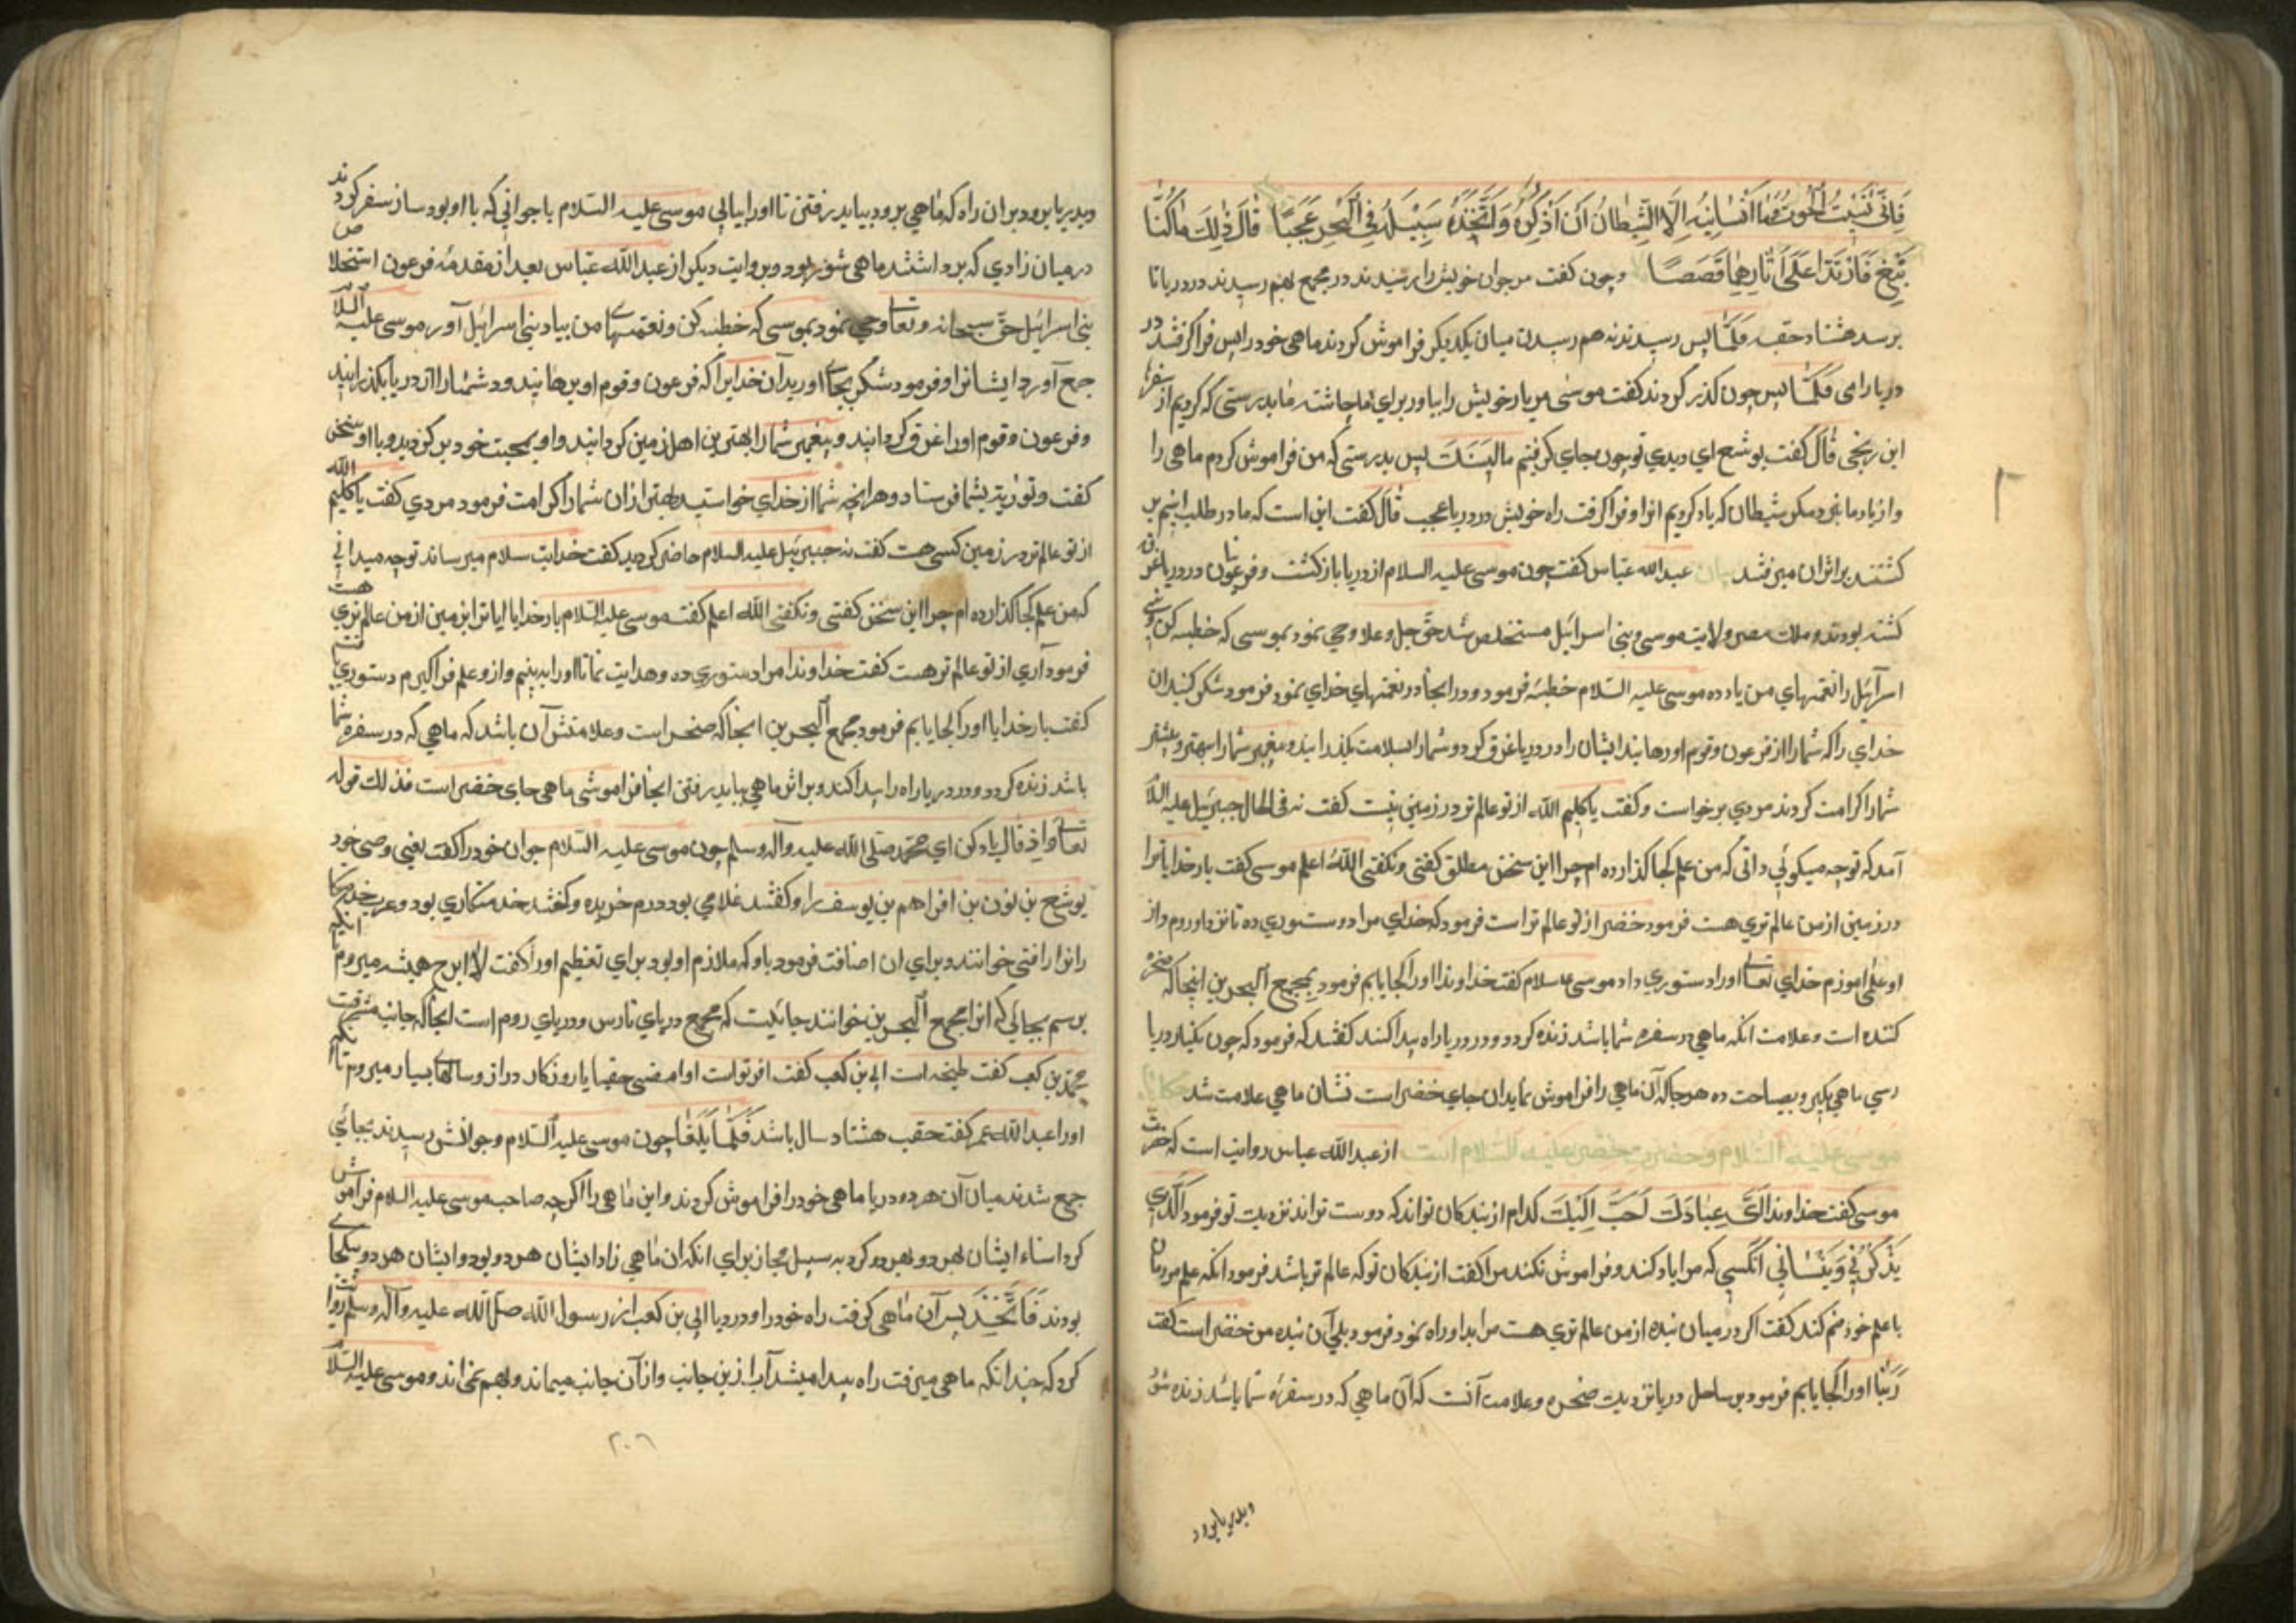 فَاِنّی نَسِیتُ الحُوتَ وَمَا اَنْسَانِیهُ اِلَّا الشَّیطَانُ اَن اَذکُرَهُ وَاتَّخَذَ سَبِیلَهُ فِی اَلبَحرِ عَجَبًا قَالَ ذٰلِكَ مَاکُنَّا
نَبغِ فَارتَدَّا عَلَی اٰثَارِهِمَا قَصَصًا وچون کفت موسی جوان خویش را در مجمع بهم رسیدند در دریا تا
برسد هشتاد حقبه فَلَمَّا پس رسیدند بهم رسیدن میان یکدیکر فراموش کردند ماهی خود را پس فرا کرفتند در
دریا رامی فَلَمَّا پس چون کذر کردند کفت موسی مر یار خویش را بیاور برای ما چاشت ما بدرستی که کردیم از سفر ما
این رنجی قَالَ کفت یوشع ای دیدی تو چون بجای کرفتیم ما پس بدرستی که من فراموش کردم ماهی را
واز یاد ما نبرد مکر شیطان که یاد کردیم انرا وفرا کرفت راه خویش در دریا عجب قَالَ کفت این است که ما در طلب اینیم پس
کشتند بر اثران میرفتند بیان عبدالله عباس کفت چون موسی علیه السلام از دریا باز کشت وفرعونیان در دریا غرق
کشته بودند وملك مصر وولایت موسی وبنی اسرائیل مستخلص شد حق جل وعلا وحی نمود بموسی که خطبه کن وبنی
اسرآئیل را نعمتهای من یاد ده موسی علیه السّلام خطبه فرمود ودر انجا در نعمتهای خدای نمود فرمود شکر کنید ان
خدای را که شما را از فرعون وقوم او رهانید ایشان را در دریا غرق کرد وشما را بسلامت بکذرانید وپیغمبر شما را بهترین بشر
شما را کرامت کردند مردی برخواست وکفت یا کلیم الله از تو عالم تر در زمین نیست کفت نه فی الحال جبرئیل علیه السلا
آمد که تو چه میکوئی دانی که من علم کجا گذارده ام چرا این سخن مطلق کفتی ونکفتی اللّهُ اعلم موسی کفت بار خدایا ترا
در زمین از من عالم تری هست فرمود خضر از تو عالم تر است فرمود که خدای مرا دوستوری ده تا نزد او روم واز
او علم اموزم خدای تعالی اورا دستوری داد موسی علیه سلام کفت خداوندا اورا کجا یابم فرمود بمجمع البحرین اینجا که صخره
کنده است وعلامت انکه ماهی در سفره شما باشد زنده کردد ودر دریا راه پیدا کند کفتند که فرمود که چون بکنار دریا
رسی ماهی بکیر وبصاحب ده هر جا که آن ماهی را فراموش نماید ان جای خضر است نشان ماهی علامت شد حکایت
موسی عَلیه السّلام وحضرت خضر علیه السّلام است از عبدالله عباس روایت است که حضرت
موسی کفت خداوندا اَیُّ عِبَادِكَ اَحَبُّ اِلَیْكَ کدام از بندکان تواند که دوست تراند نزدیك تو فرمود اَلَّذِی
یَذْکُرُنِی وَیَنْسَانِی انکسی که مرا یاد کند وفراموش نکند مرا کفت از بندکان تو که عالم تر باشد فرمود انکه علم مردمان
با علم خود ضم کند کفت اکر در میان بنده از من عالم تری هست مرا بدو راه نمود فرمود بلی آن بنده من خضر است کفت
رَبَّنا اورا کجا یابم فرمود بر ساحل دریا نزدیك صخره وعلامت آنست که آن ماهی که در سفره شما باشد زنده شود
وبدریا برود
وبدریا برود بران راه که ماهی برود بیاید رفتن تا اورا بیابی موسی علیه السّلام با جوانی که با او بود ساز سفر کردند
در میان زادی که برداشتند ماهی شور بود وبروایت دیکر از عبد اللّه عبّاس بعد از مقدمهٔ فرعون استخلاص
بنی اسرائیل حق سبحانه وتعالی وحی نمود بموسی که خطبه کن ونعمتهای من بیاد بنی اسرائیل آور موسی علیه السّلا
جمع آورد ایشانرا وفرمود شکر بجای اورید آن خدایرا که فرعون وقوم او برهانید ودشمنانرا از دریا بکذرانید
وفرعون وقوم اورا غرق کردانید وپیغمبر شما را بهترین اهل زمین کردانید واو بمحبت خود برکزید وبا او سخن
کفت وتوریة بشما فرستاد وهر انچه شما از خدای خواستید بهتر از ان شما را کرامت فرمود مردی کفت یا کلیم الله
از تو عالم تر در زمین کسی هست کفت نه جبرئیل علیه السلام حاضر کردید کفت خدایت سلام میرساند توچه میدانی
که من علم کجا کذارده ام چرا این سخن کفتی ونکفتی اللّه اعلم کفت موسی علیه السّلام بار خدایا ایا ترا در زمین از من عالم تری هست
فرمود آری از تو عالم تر هست کفت خداوندا مرا دستوری ده وهدایت نما تا اورا به بینم وازو علم فرا کیرم دستوری
کفت بار خدایا اورا کجا یابم فرمود مجمع البحرین انجا که صخره است وعلامتش آن باشد که ماهی که در سفره شما
باشد زنده کردد ودر دریا راه را پیدا کند وبر اثر ماهی بباید رفتن انجا فراموشی ماهی جای خضر است فذلك قوله
تعالی واِذ قال یاد کن ای محمّد صلی اللّه علیه وآله وسلم چون موسی علیه السّلام جوان خود را کفت یعنی وصی خود
یوشع بن نون بن افراهم بن یوسف را وکفتند غلامی بود درم خریده وکفتند خدمتکاری بود وعرب خدمتکا
رانرا فتی خوانند وبرای ان اضافت فرمود باو که ملازم او بود برای تعظیم اورا کفت لا ابرح همیشه میروم تا انکه
برسم بجائی که انرا مجمع البحرین خوانند جائیست که مجمع دریای فارس ودریای روم است انجا که جانب مشرقست
محمّد بن کعب کفت طنجه است ابی بن کعب کفت افریقا است او امضی حقبا یا روزکار دراز وسالهای بسیار میروم تا
اورا عبد الله عمر کفت حقب هشتاد سال باشد فَلَمَّا بَلَغَا چون موسی علیه السّلام وجوانش رسیدند بجائی
جمع شدند میان آن هر دو دریا ماهی خود را فراموش کردند واین ماهی را اکر چه صاحب موسی علیه السلام فراموش
کرد اسناد ایشان بهر دو کرد به سبیل مجاز برای انکه ان ماهی زاد ایشان هر دو بود وایشان هر دو یکجای
بودند فَاتَّخَذَ پس آن ماهی کرفت راه خود را در دریا ابی بن کعب از رسول اللّه صلی اللّه علیه وآله وسلم روایت
کرد که چندانکه ماهی میرفت راه پیدا میشد آب ازین جانب وازآن جانب میماند وبهم نمیاند وموسی علیه السّلا
۲۰٦